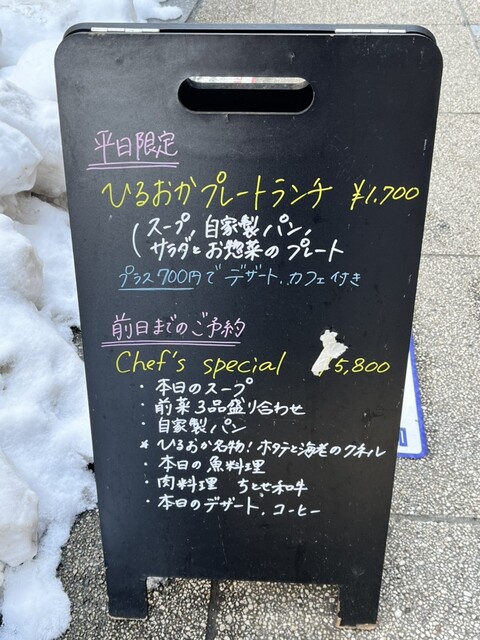 平日限定
ひるおかプレートランチ ¥1,700
(スープ, 自家製パン,
サラダとお惣菜のプレート
プラス700円でデザート, カフェ付き
前日までのご予約
Chef's special 5,800
・本日のスープ
・前菜3品盛り合わせ
・自家製パン
* ひるおか名物! ホタテと海老のクネル
・本日の魚料理
・肉料理 ちとせ和牛
・本日のデザート, コーヒー